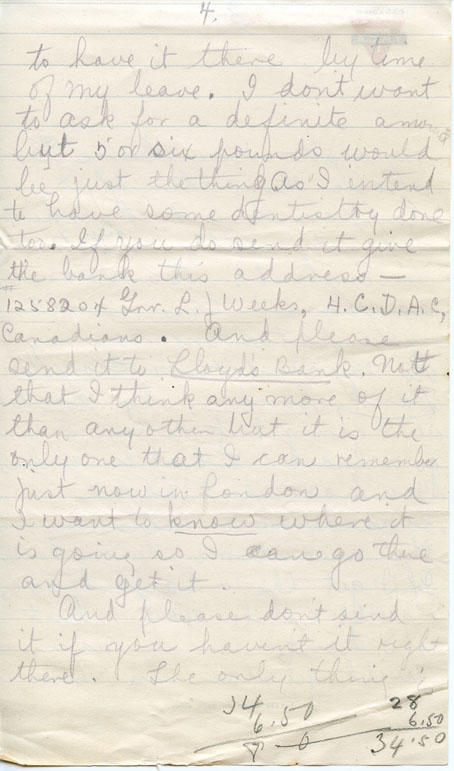 4.
to have it there by time
of my leave. I don't want
to ask for a definite
but 5 or six pounds would
be just the thing as I intend
to have some dentistry done
too. If you do send it give
the bank this address —
1258204 Gnr. L. J Weeks, 4. C. D. A. C,
Canadians. And please
send it to Lloyds Bank. Not
that I think any more of it
than any other but it is the
only one that I can remember
just now in London and
I want to know where it
is going so I can go there
and get it.
And please don't send
it if you haven't it right
there. The only thing
34
6.50
28
6.50
34.50